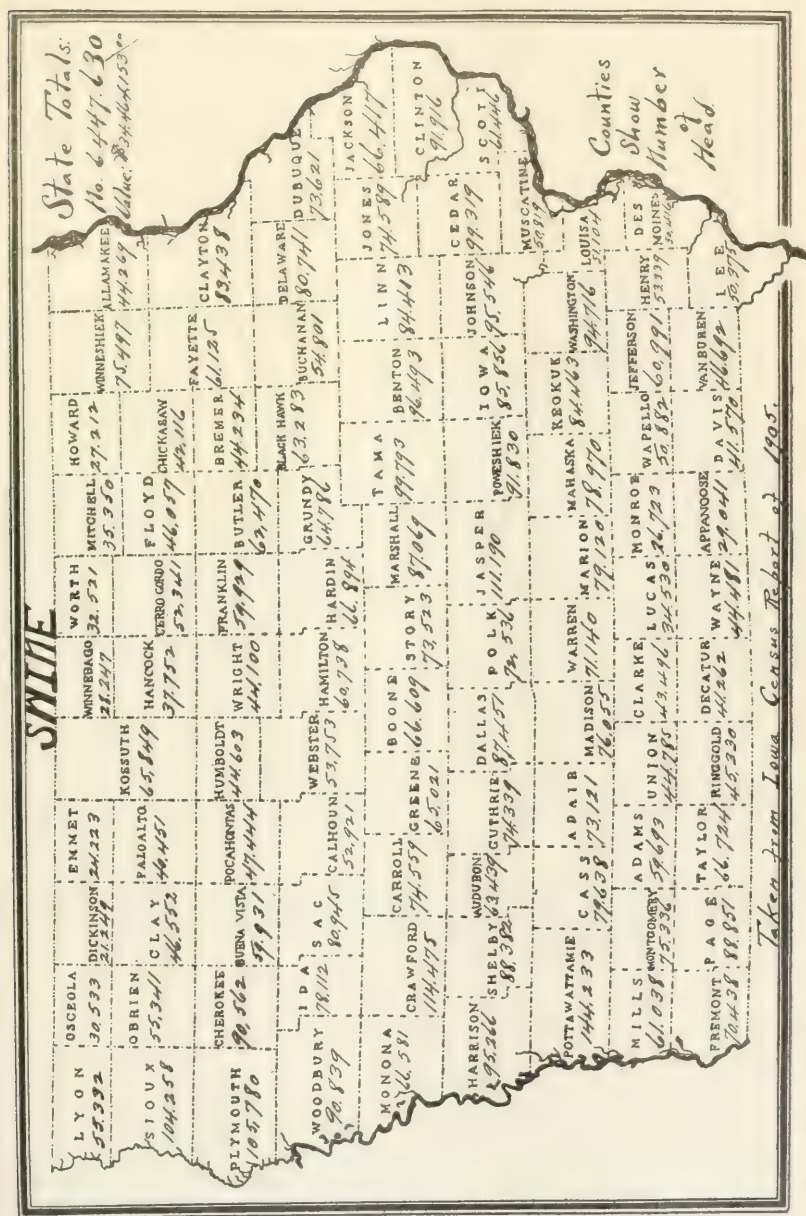 SWINE
State Totals:
No. 6447.630
Value, $34.464.153.00
LYON
55.332
OSCEOLA
30.533
DICKINSON
21.249
EMMET
24.223
WINNEBAGO
28.247
WORTH
32.521
MITCHELL
35.350
HOWARD
27.212
WINNESHIEK
75.497
ALLAMAKEE
44.269
SIOUX
104.258
OBRIEN
55.341
CLAY
46.552
PALO ALTO
46.451
KOSSUTH
65.849
HANCOCK
37.752
CERRO GORDO
52.341
FLOYD
46.057
CHICKASAW
42.116
FAYETTE
61.125
CLAYTON
83.438
PLYMOUTH
105.780
CHEROKEE
90.562
BUENA VISTA
59.931
POCAHONTAS
47.444
HUMBOLDT
44.603
WRIGHT
44.100
FRANKLIN
59.929
BUTLER
62.470
BREMER
44.234
WOODBURY
90.839
IDA
78.112
SAC
80.945
CALHOUN
52.921
WEBSTER
53.753
HAMILTON
60.738
HARDIN
66.894
GRUNDY
64.786
BLACK HAWK
63.283
BUCHANAN
54.801
DELAWARE
80.741
DUBUQUE
73.621
MONONA
66.581
CRAWFORD
114.475
CARROLL
74.559
GREENE
65.021
BOONE
66.609
STORY
73.523
MARSHALL
87.069
TAMA
99.793
BENTON
96.493
LINN
84.413
JONES
74.589
JACKSON
66.417
CLINTON
91.916
HARRISON
95.266
SHELBY
88.382
AUDUBON
63.439
GUTHRIE
74.339
DALLAS
87.457
POLK
72.536
JASPER
111.190
POWESHIEK
91.830
IOWA
85.856
JOHNSON
95.546
CEDAR
99.319
SCOTT
61.446
MUSCATINE
50.819
POTTAWATTAMIE
144.233
CASS
79.638
ADAIR
73.121
MADISON
76.055
WARREN
71.140
MARION
79.120
MAHASKA
78.970
KEOKUK
84.463
WASHINGTON
94.716
LOUISA
51.104
MILLS
61.038
MONTGOMERY
75.336
ADAMS
59.693
UNION
44.785
CLARKE
43.496
LUCAS
34.530
MONROE
26.723
WAPELLO
50.882
JEFFERSON
60.991
HENRY
53.939
DES
MOINES
50.416
FREMONT
70.438
PAGE
88.851
TAYLOR
66.724
RINGGOLD
45.330
DECATUR
44.262
WAYNE
44.481
APPANOOSE
29.041
DAVIS
41.570
VAN BUREN
46.692
LEE
50.375
Counties
Show
Number
of
Head.
Taken from Iowa Census Report of 1905.